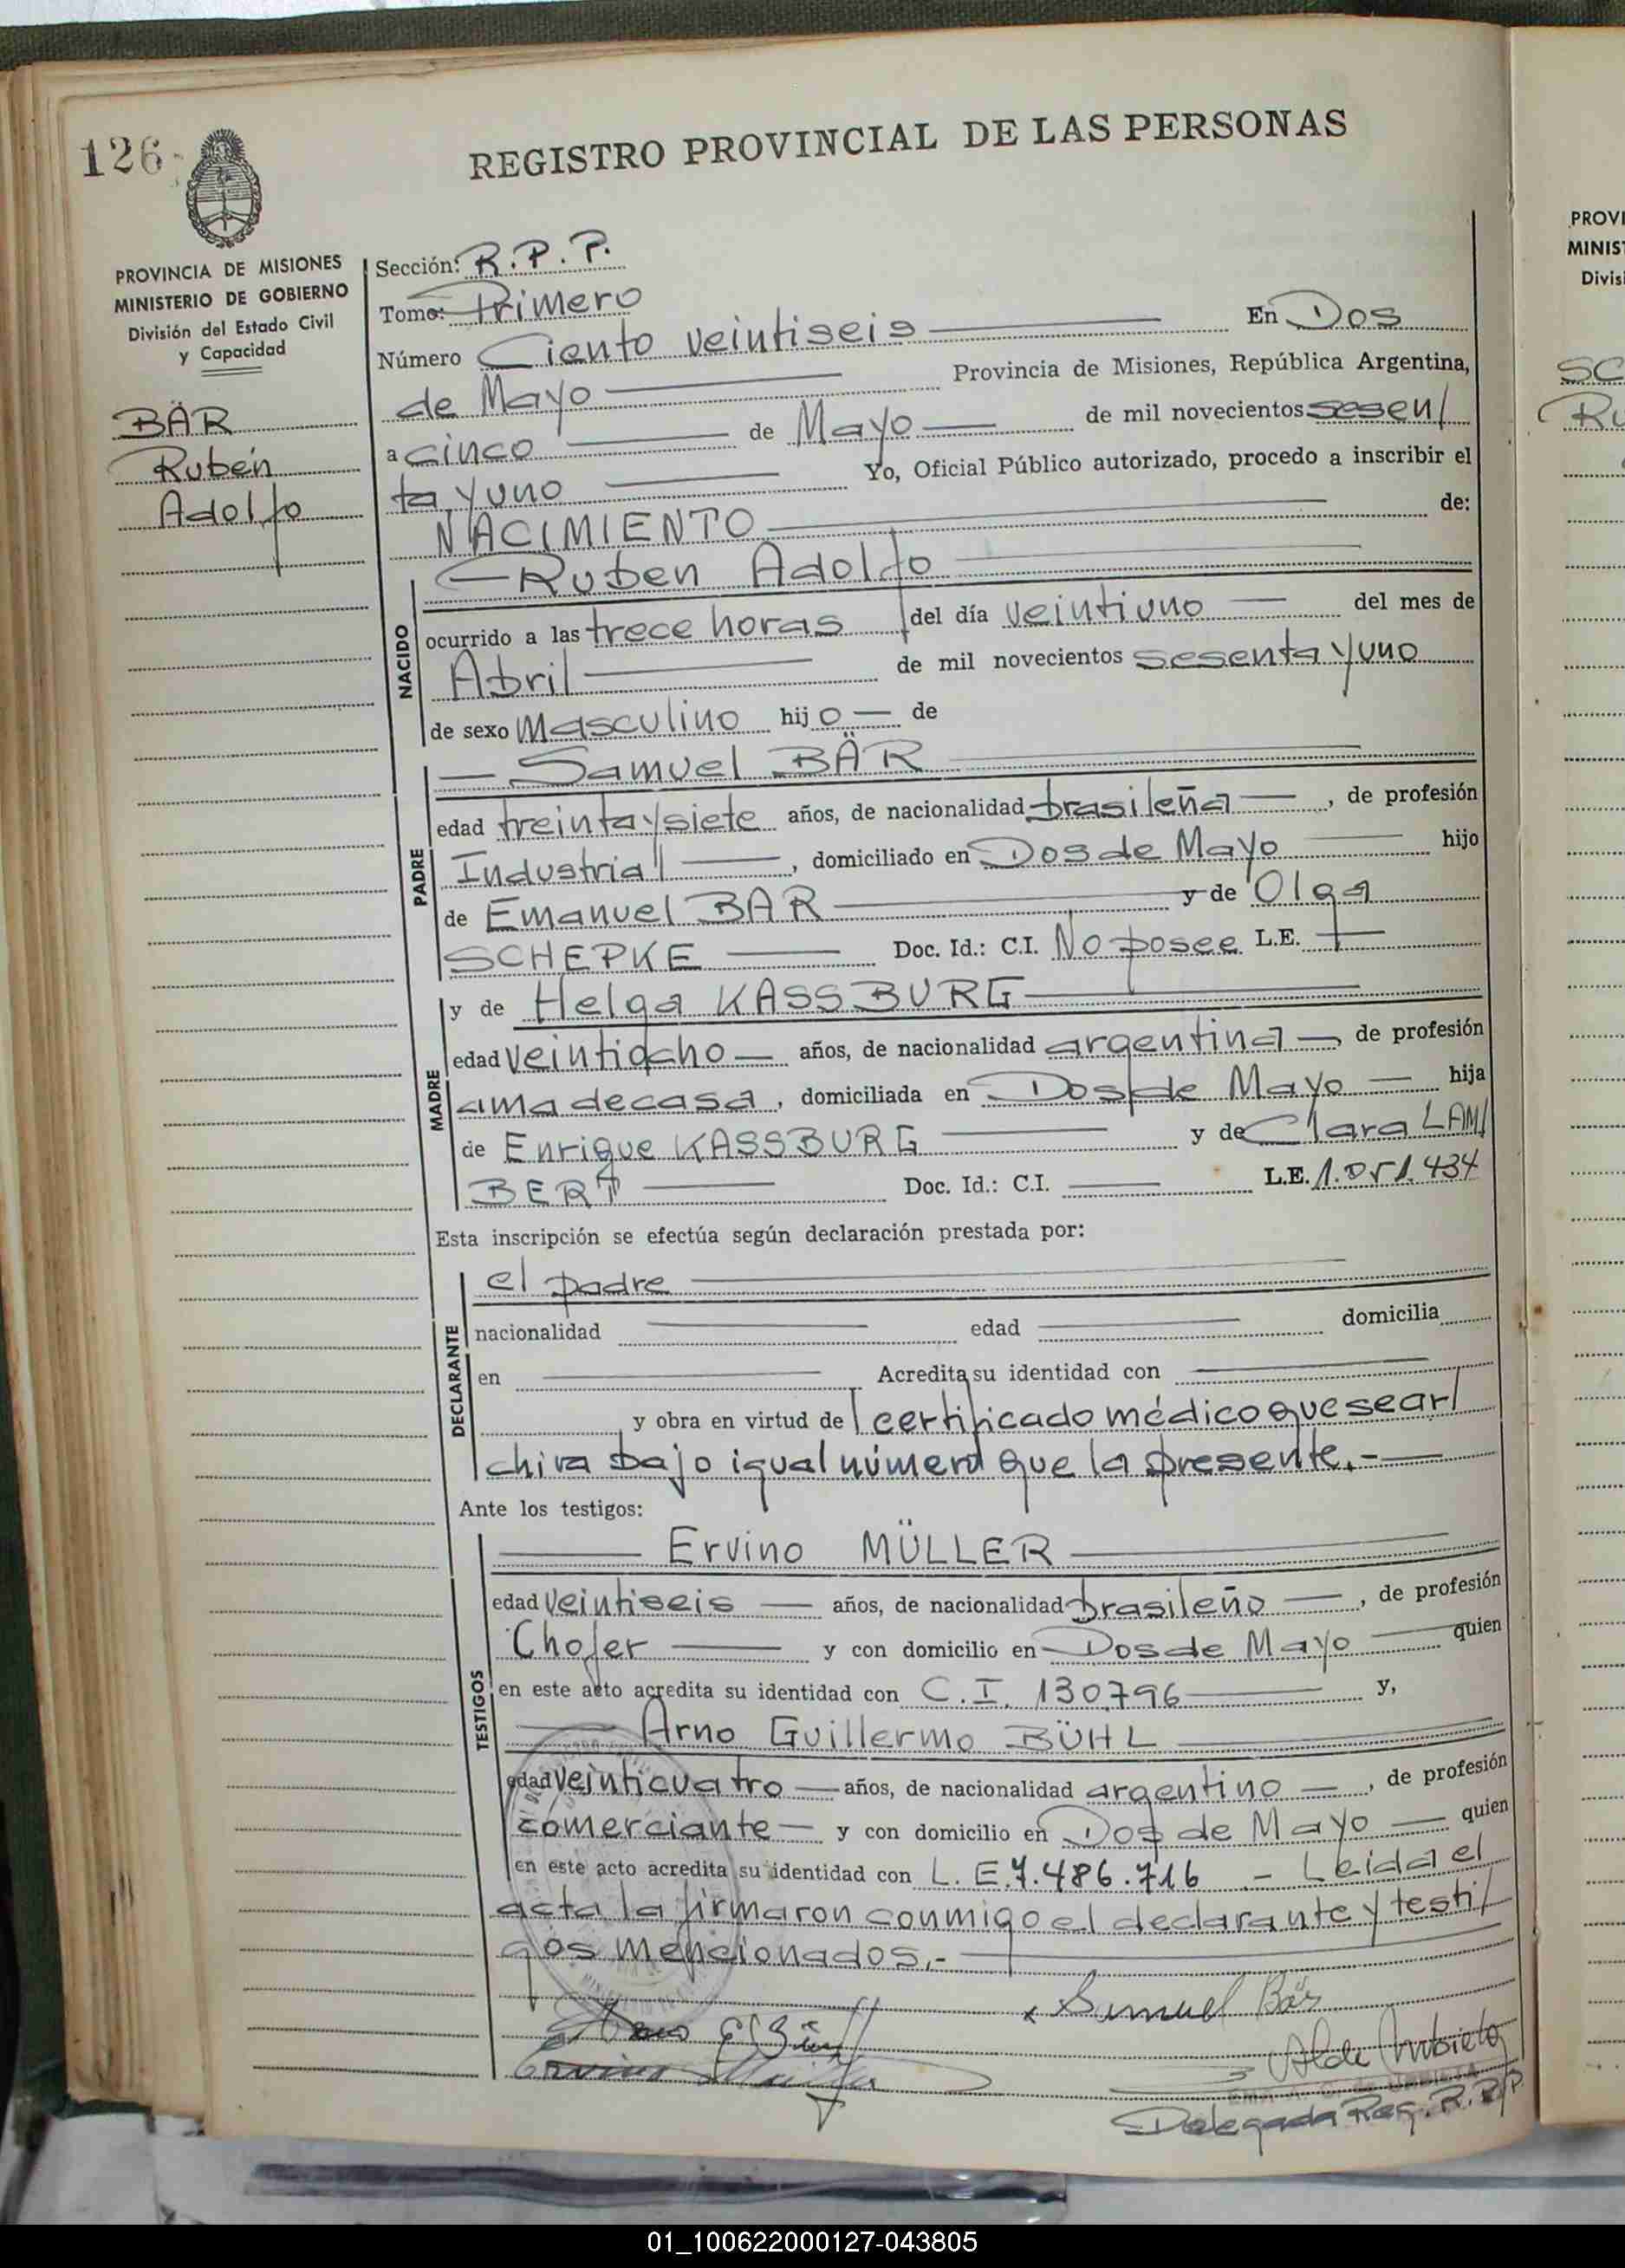 126
REGISTRO PROVINCIAL DE LAS PERSONAS
PROVINCIA DE MISIONES
MINISTERIO DE GOBIERNO
División del Estado Civil
y Capacidad
BÄR
Rubén
Adolfo
Sección: R.P.P.
Tomo: Primero
Número Ciento veintiseis En Dos
de Mayo Provincia de Misiones, República Argentina,
a cinco de Mayo de mil novecientos sesen/
ta y uno Yo, Oficial Público autorizado, procedo a inscribir el
NACIMIENTO de:
NACIDO
Ruben Adolfo
ocurrido a las trece horas del día veintiuno del mes de
Abril de mil novecientos sesenta y uno
de sexo Masculino hijo de
PADRE
Samuel BÄR
edad treinta y siete años, de nacionalidad brasileña, de profesión
Industrial, domiciliado en Dos de Mayo hijo
de Emanuel BÄR y de Olga
SCHEPKE Doc. Id.: C.I. No posee L.E.
MADRE
y de Helga KASSBURG
edad veintiocho años, de nacionalidad argentina de profesión
ama de casa, domiciliada en Dos de Mayo hija
de Enrique KASSBURG y de Clara LAM/
BERT Doc. Id.: C.I. L.E. 1.051.434
Esta inscripción se efectúa según declaración prestada por:
DECLARANTE
el padre
nacionalidad edad domicilia
en Acredita su identidad con
y obra en virtud de certificado médico que se ar/
chiva bajo igual número que la presente.-
Ante los testigos:
TESTIGOS
Ervino MÜLLER
edad veintiseis años, de nacionalidad brasileño, de profesión
Chofer y con domicilio en Dos de Mayo quien
en este acto acredita su identidad con C.I. 130.796 y,
Arno Guillermo BÜHL
edad veinticuatro años, de nacionalidad argentino, de profesión
comerciante y con domicilio en Dos de Mayo quien
en este acto acredita su identidad con L.E. 7.486.716.- Leida el
acta la firmaron conmigo el declarante y testi/
gos mencionados.-
x Samuel Bär
Delegada Reg. R.P.P.
PROVI
MINIS
Divis
SC
Ru
01_100622000127-043805